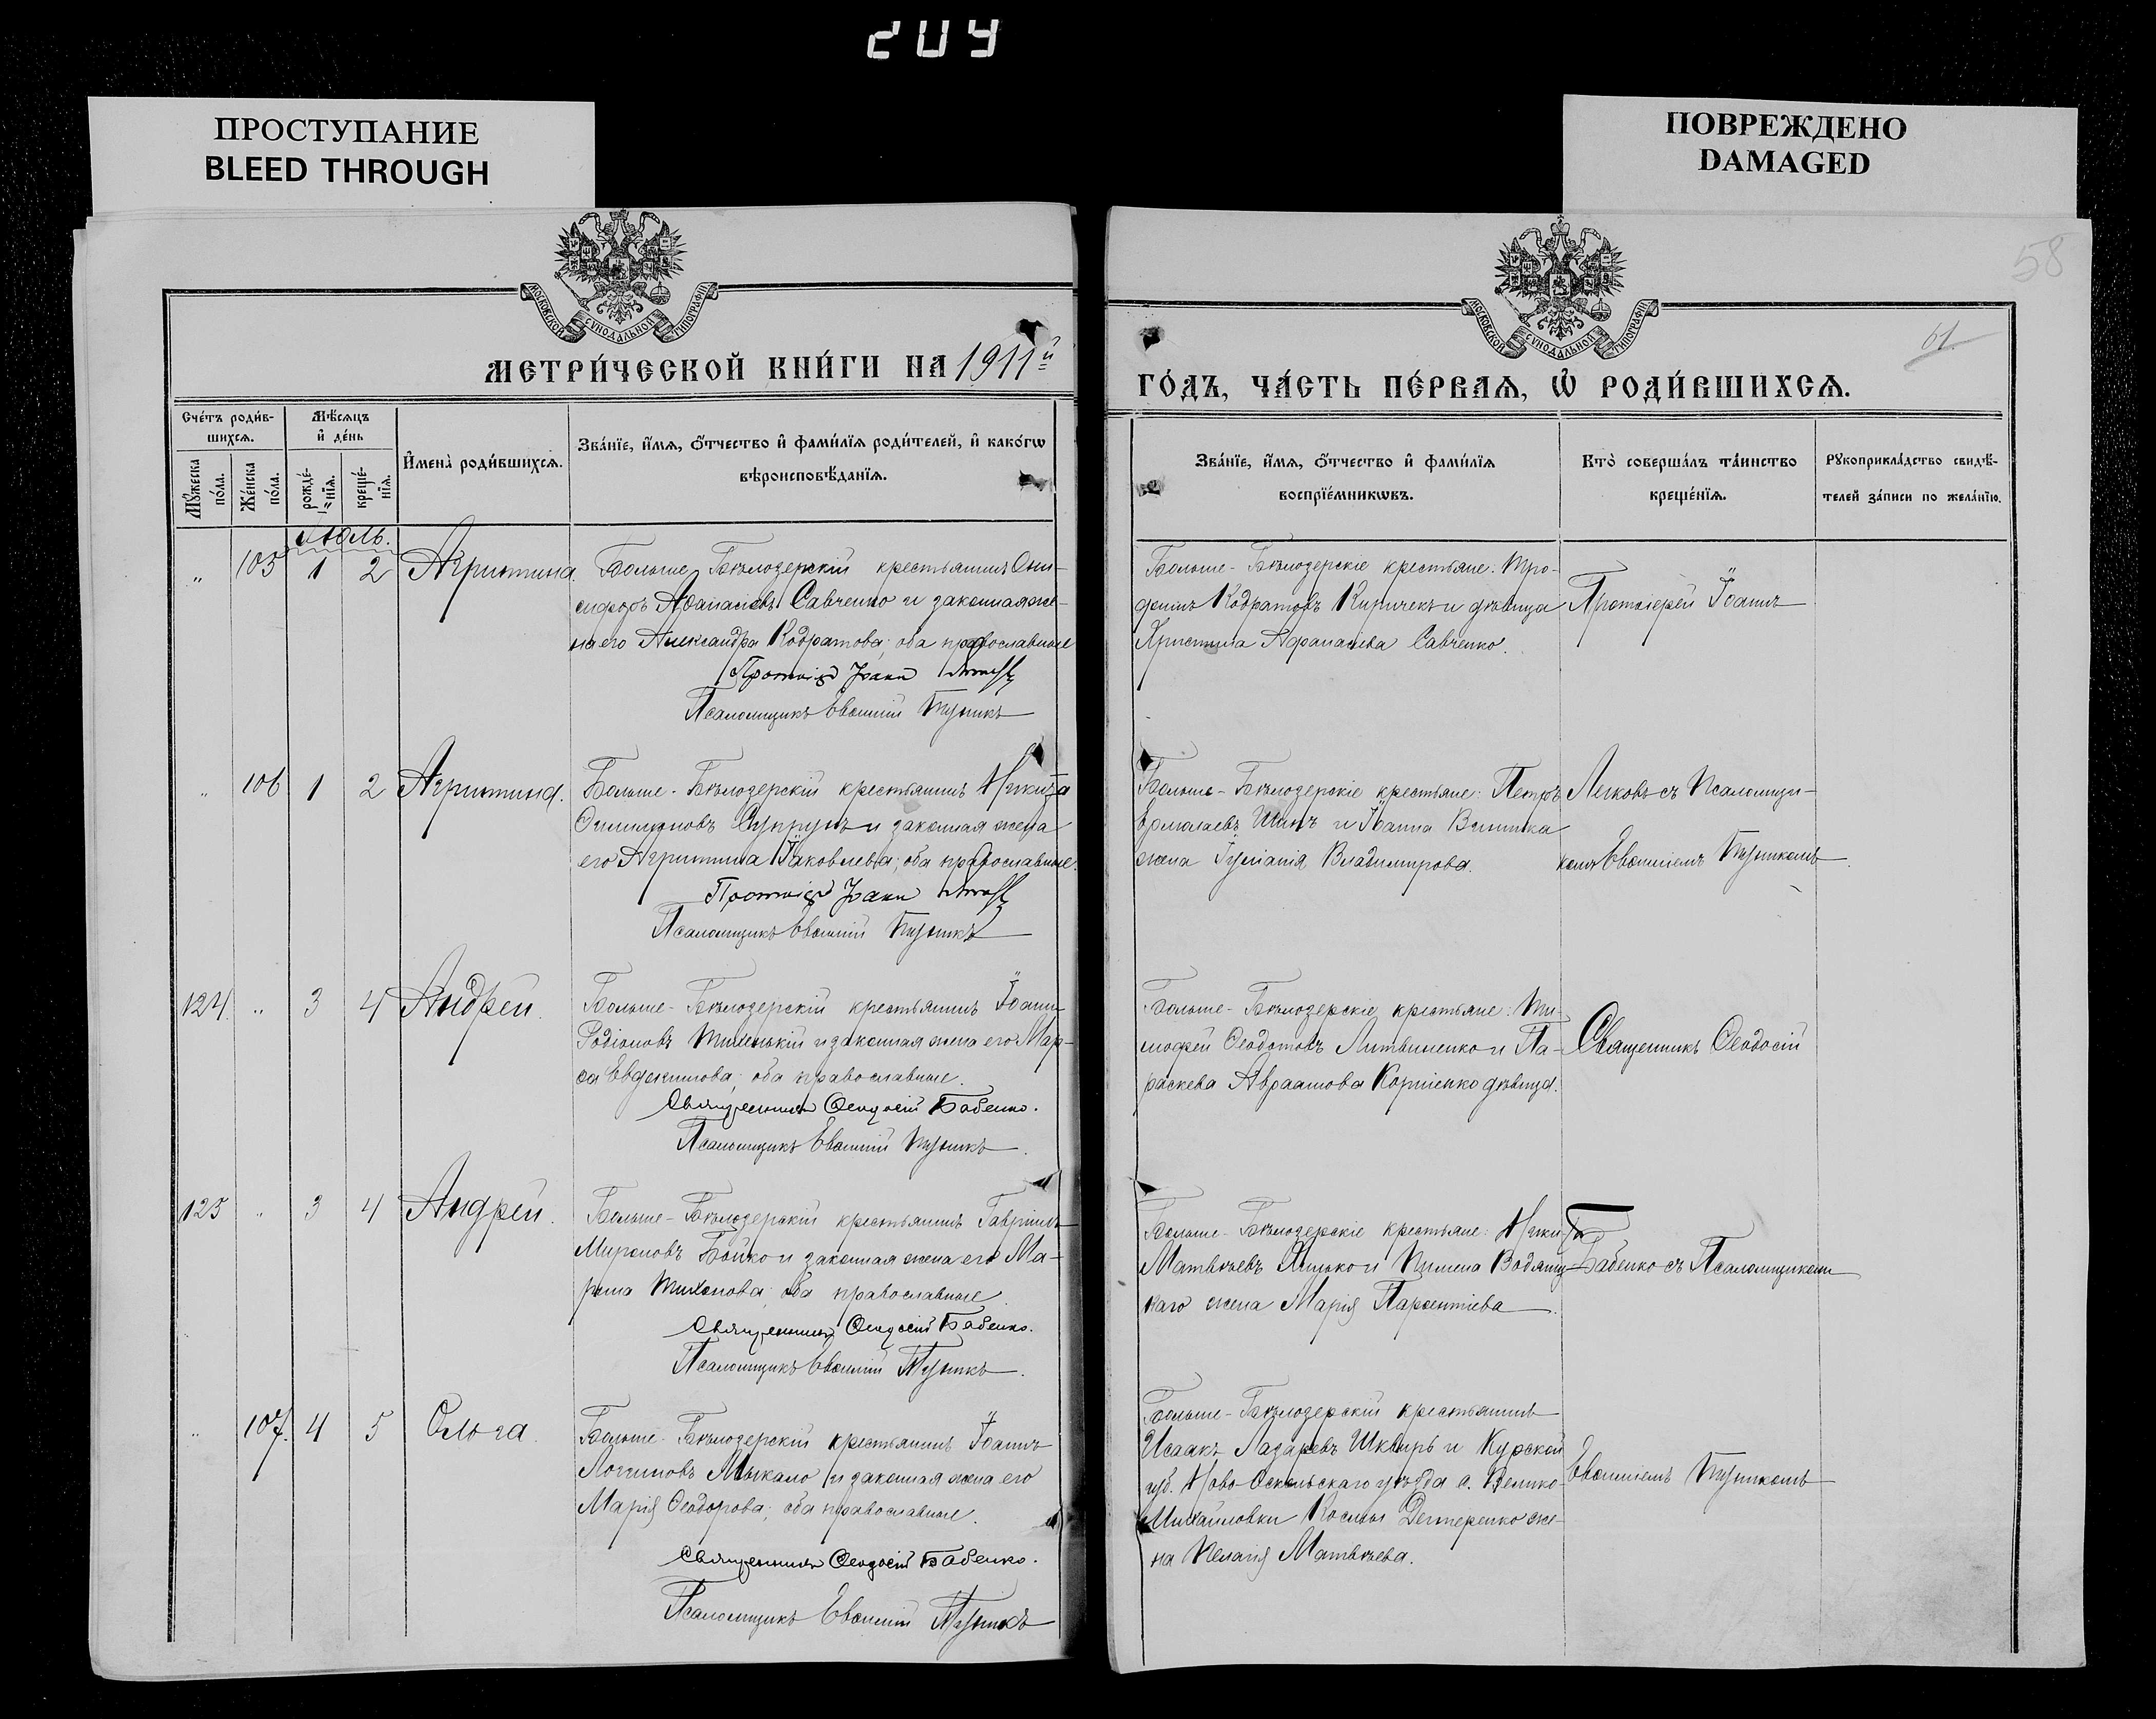 204
ПРОСТУПАНИЕ
BLEED THROUGH
ПОВРЕЖДЕНО
DAMAGED
58
61.
МОСКОВСКОЙ СѴНОДАЛЬНОЙ ТИПОГРАФІИ
МОСКОВСКОЙ СѴНОДАЛЬНОЙ ТИПОГРАФІИ
МЕТРИ́ЧЕСКОЙ КНИ́ГИ НА 1911й
ГО́ДЪ, ЧА́СТЬ ПЕ́РВАЯ, Ѽ РОДИ́ВШИХСЯ.
Сче́тъ роди́в-
шихся.
Мѣ́сяцъ
и҆ де́нь
И҆мена̀ роди́вшихся.
Зва́нїе, и҆́мя, ѻ҆́тчество и҆ фами́лїя роди́телей, и҆ како́гѡ
вѣроисповѣ́данїя.
Мꙋ́жеска
по́ла.
Же́нска
по́ла.
рожде́-
нїя.
креще́-
нїя.
Зва́нїе, и҆́мя, ѻ҆́тчество и҆ фами́лїя
воспрїе́мникѡвъ.
Кто̀ соверша́лъ та́инство
креще́нїя.
Рꙋкоприкла́дство свидѣ́-
телей за́писи по жела́нїю.
Іюль.
„ 105 1 2 Агриппина.
Больше-Бѣлозерскій крестьянинъ Они-
сифоръ Аѳанасіевъ Савченко и законная же-
на его Александра Кодратова; оба православные
Протоіер Іоанн
Псаломщикъ Евѳимій Пузикъ
Больше-Бѣлозерскіе крестьяне: Тро-
фимъ Кодратовъ Киричекъ и дѣвица
Христина Аѳанасіева Савченко.
Протоіерей Іоаннъ
„ 106 1 2 Агриппина.
Больше-Бѣлозерскій крестьянинъ Никита
Супрунъ и законная жена
его Агриппина Іаковлева; оба православные.
Протоіер Іоанн
Псаломщикъ Евѳимій Пузикъ
Больше-Бѣлозерскіе крестьяне: Петръ
Ермолаевъ Шинъ и Іоанна Винника
жена Гликерія Владимирова.
съ Псаломщи-
комъ Евѳиміемъ Пузикомъ.
124. „ 3 4 Андрей.
Больше-Бѣлозерскій крестьянинъ Іоаннъ
Родіоновъ Тихенькій и законная жена его Мар-
ѳа Евдокимова; оба православные.
Священникъ Ѳеодосій Бабенко.
Псаломщикъ Евѳимій Пузикъ.
Больше-Бѣлозерскіе крестьяне: Ти-
моѳей Ѳеодотовъ Литвиненко и Па-
раскева Авраамова Корніенко дѣвица.
Священникъ Ѳеодосій
125 „ 3 4 Андрей.
Больше-Бѣлозерскій крестьянинъ Гавріилъ
Мироновъ Бойко и законная жена его Ма-
рина Тихонова; оба православные.
Священникъ Ѳеодосій Бабенко.
Псаломщикъ Евѳимій Пузикъ.
Больше-Бѣлозерскіе крестьяне: Никита
Матвѣевъ и Пимена Водяниц-
каго жена Марія Парѳентіева.
Бабенко съ Псаломщикомъ
„ 107. 4 5 Ольга.
Больше-Бѣлозерскій крестьянинъ Іоаннъ
Логгиновъ Мыкало и законная жена его
Марія Ѳеодорова; оба православные.
Священникъ Ѳеодосій Бабенко.
Псаломщикъ Евѳимій Пузикъ
Больше-Бѣлозерскій крестьянинъ
Исаакъ Лазаревъ Шквиръ и Курской
губ. Ново-Оскольскаго уѣзда с. Велико-
Михайловки Космы Дегтеренко же-
на Пелагія Матвѣева.
Евѳиміемъ Пузикомъ